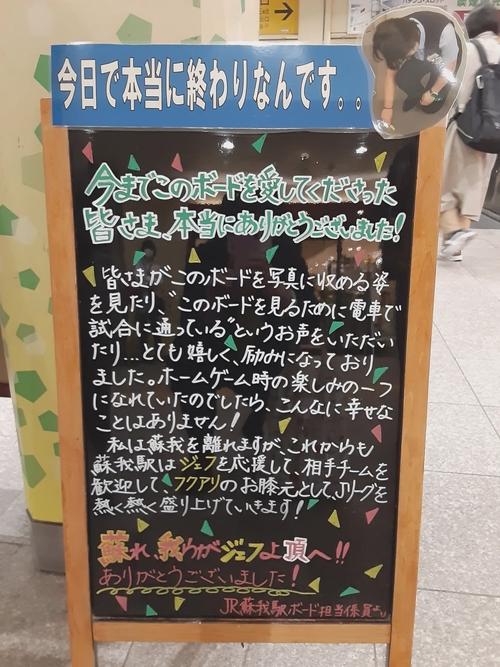 今日で本当に終わりなんです。。
今までこのボードを愛してくださった
皆さま、本当にありがとうございました!
皆さまがこのボードを写真に収める姿
を見たり、“このボードを見るために電車で
試合に通っている”というお声をいただい
たり...とても嬉しく、励みになっており
ました。ホームゲーム時の楽しみの一つ
になれていたのでしたら、こんなに幸せな
ことはありません!
私は蘇我を離れますが、これからも
蘇我駅はジェフを応援して、相手チームを
歓迎して、フクアリのお膝元として、Jリーグを
熱く熱く盛り上げていきます!
蘇れ、我らがジェフよ頂へ!!
ありがとうございました!
JR蘇我駅ボード担当係員より